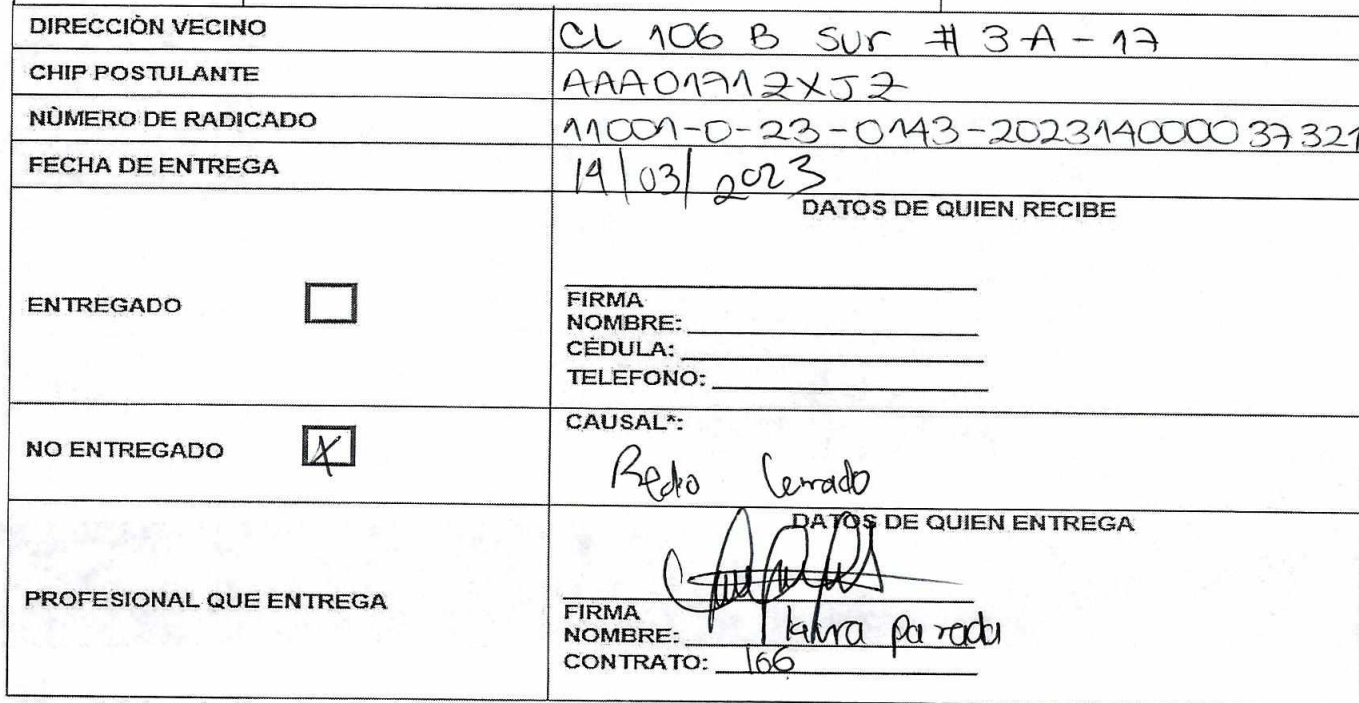 DIRECCIÒN VECINO CL 106 B Sur # 3A-17
CHIP POSTULANTE AAA0171ZXJZ
NÙMERO DE RADICADO 11001-0-23-0143-20231400037321
FECHA DE ENTREGA 14/03/2023
DATOS DE QUIEN RECIBE
ENTREGADO
FIRMA
NOMBRE:
CÉDULA:
TELEFONO:
NO ENTREGADO X
CAUSAL*:
Predio Cerrado
DATOS DE QUIEN ENTREGA
PROFESIONAL QUE ENTREGA
FIRMA
NOMBRE: laura parada
CONTRATO: 166